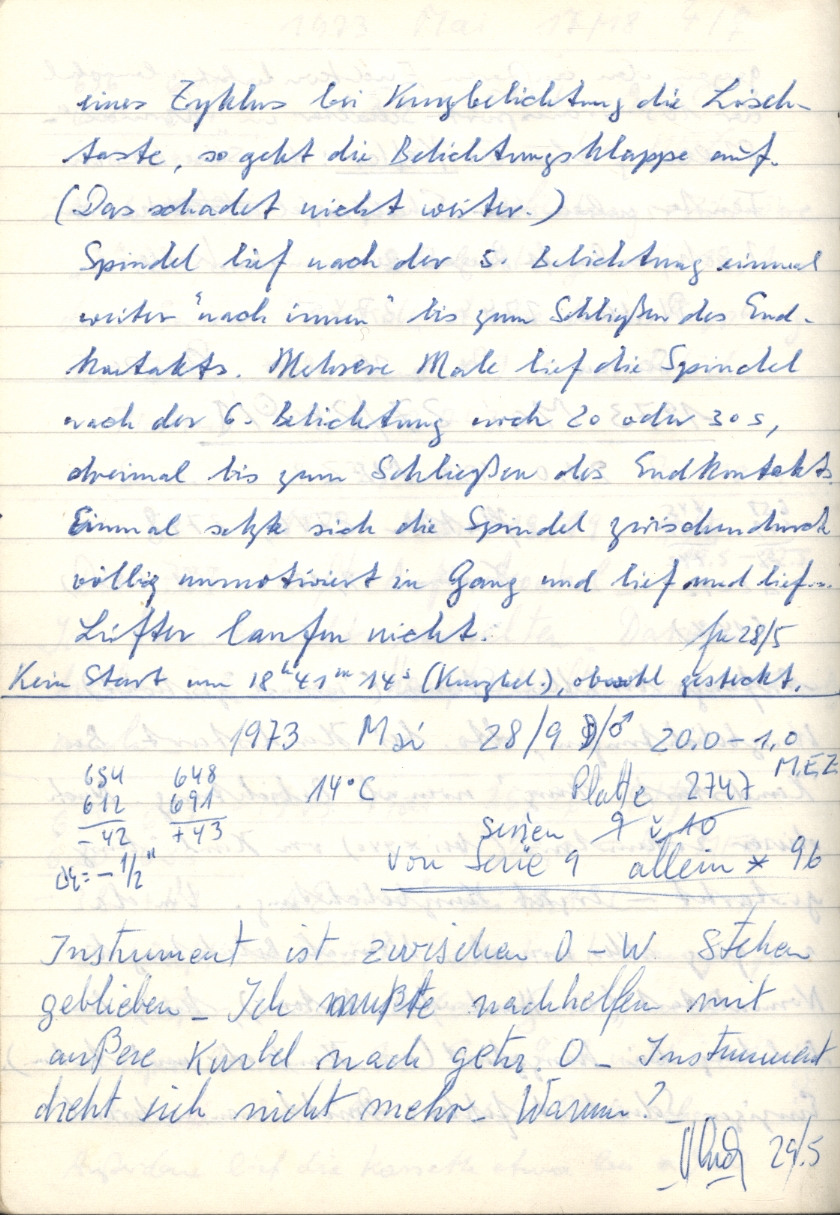 eines Zyklus bei Kurzbelichtung die Lösch-
taste, so geht die Belichtungsklappe auf.
(Das schadet nicht weiter.)
Spindel lief nach der 5. Belichtung einmal
weiter "nach innen" bis zum Schließen des End-
kontakts. Mehrere Male lief die Spindel
nach der 6. Belichtung noch 20 oder 30 s,
dreimal bis zum Schließen des Endkontakts.
Einmal setzte sich die Spindel zwischendurch
völlig unmotiviert in Gang und lief und lief...
Lüfter laufen nicht. 28/5
Kein Start um 18h 41m 14s (Kurzbel.), obwohl gesteckt.
1973 Mai 28/9 ☽/♂ 20.0 – 1.0 MEZ
654 648 14°C Platte 2747
612 691 Serien 9 u. 10
-42 +43 von Serie 9 allein * 96
= - 1/2"
Instrument ist zwischen O – W Stehen
geblieben – Ich mußte nachhelfen mit
äußere Kurbel nach O – Instrument
dreht sich nicht mehr – Warum?
29/5